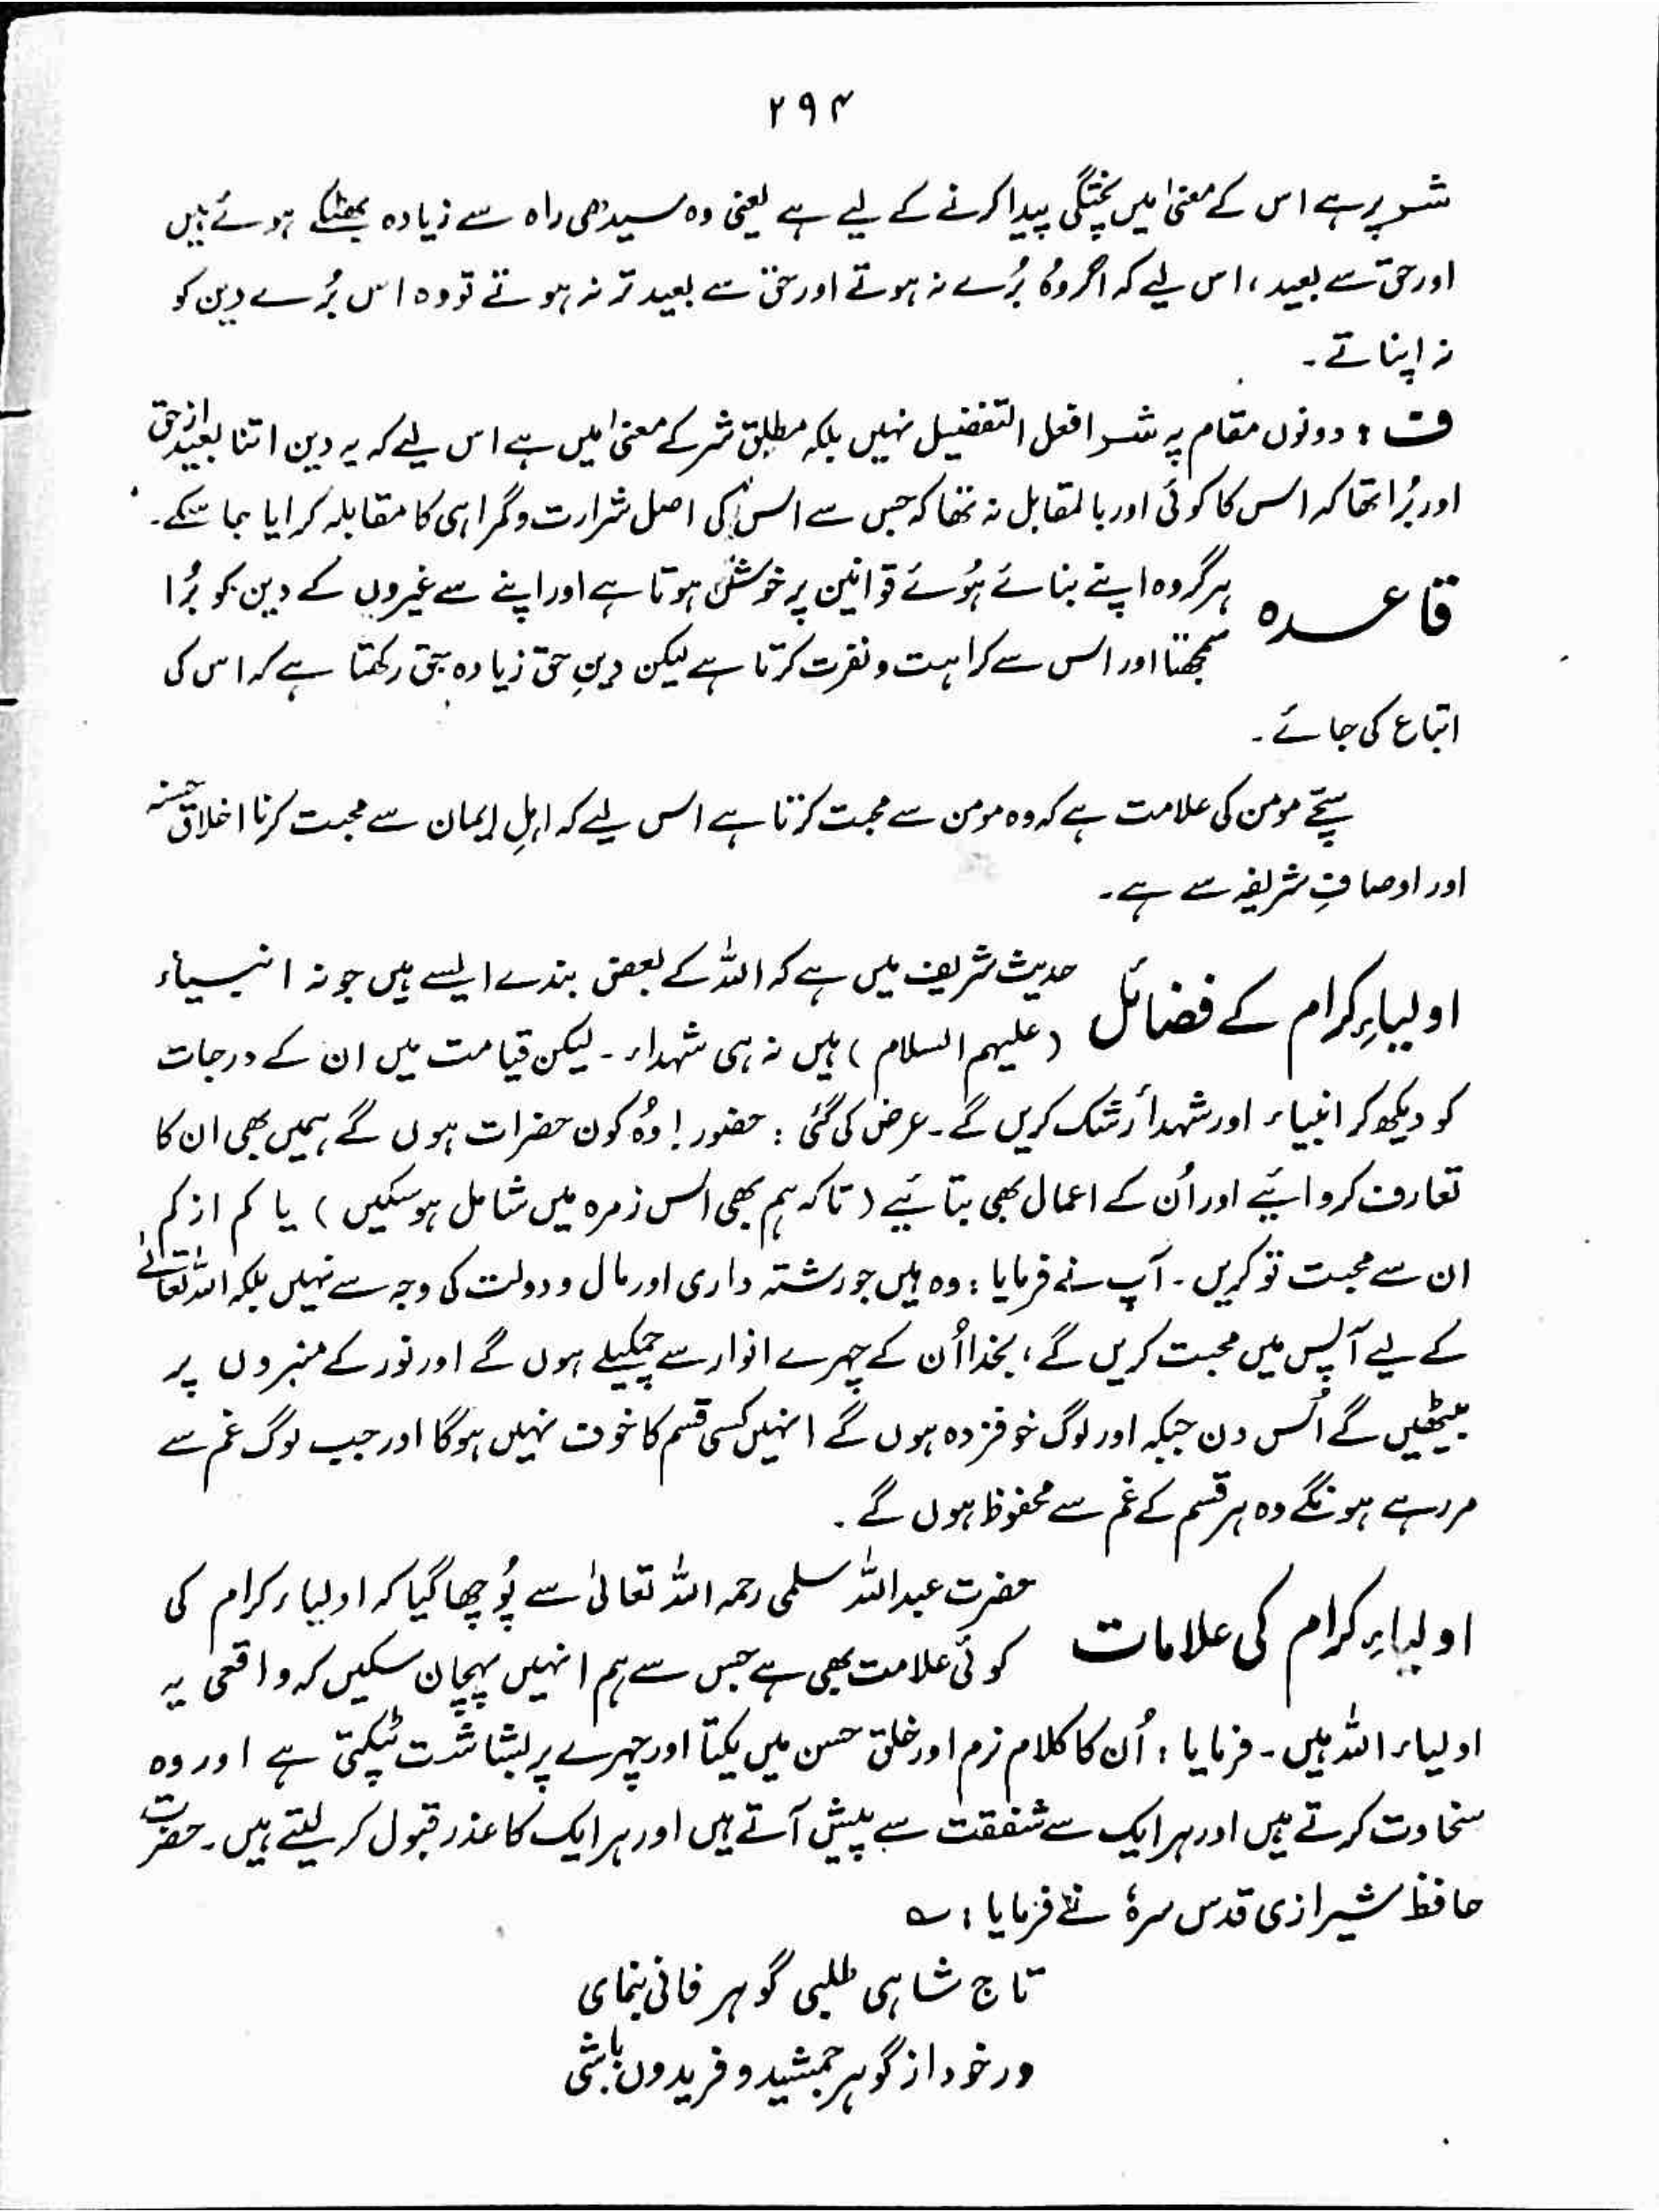 ۲۹۴
شر پر ہے اس کے معنیٰ میں پختگی پیدا کرنے کے لیے ہے یعنی وہ سیدھی راہ سے زیادہ بھٹکے ہوئے ہیں
اور حق سے بعید، اس لیے کہ اگر وہُ بُرے نہ ہوتے اور حق سے بعید تر نہ ہوتے تو وہ اس بُرے دین کو
نہ اپناتے۔
ف : دونوں مقام پہ شر افعل التفضیل نہیں بلکہ مطلق شر کے معنیٰ میں ہے اس لیے کہ یہ دین اتنا بعید از حق
اور بُرا تھا کہ اس کا کوئی اور بالمقابل نہ تھا کہ جس سے اس کی اصل شرارت و گمراہی کا مقابلہ کرایا جا سکے۔
قاعدہ ہر گروہ اپنے بنائے ہُوئے قوانین پر خوش ہوتا ہے اور اپنے سے غیروں کے دین کو بُرا
سمجھتا اور اس سے کراہت و نفرت کرتا ہے لیکن دینِ حق زیادہ حق رکھتا ہے کہ اس کی
اتباع کی جائے۔
سچّے مومن کی علامت ہے کہ وہ مومن سے محبت کرتا ہے اس لیے کہ اہلِ ایمان سے محبت کرنا اخلاق حسنہ
اور اوصافِ شریفہ سے ہے۔
اولیاءِ کرام کے فضائل حدیث شریف میں ہے کہ اللہ کے بعض بندے ایسے ہیں جو نہ انبیاء
(علیہم السلام) ہیں نہ ہی شہداء۔ لیکن قیامت میں ان کے درجات
کو دیکھ کر انبیاء اور شہدأ رشک کریں گے۔ عرض کی گئی : حضور! وہُ کون حضرات ہوں گے ہمیں بھی ان کا
تعارف کروائیے اور اُن کے اعمال بھی بتائیے (تاکہ ہم بھی اس زمرہ میں شامل ہوسکیں) یا کم از کم
ان سے محبت تو کریں۔ آپ نے فرمایا : وہ ہیں جو رشتہ داری اور مال و دولت کی وجہ سے نہیں بلکہ اللہ تعالےٰ
کے لیے آپس میں محبت کریں گے، بخدا اُن کے چہرے انوار سے چمکیلے ہوں گے اور نور کے منبروں پر
بیٹھیں گے اُس دن جبکہ اور لوگ خوفزدہ ہوں گے انہیں کسی قسم کا خوف نہیں ہوگا اور جب لوگ غم سے
مر رہے ہونگے وہ ہر قسم کے غم سے محفوظ ہوں گے۔
اولیاءِ کرام کی علامات حضرت عبداللہ سلمی رحمہ اللہ تعالیٰ سے پُوچھا گیا کہ اولیاء کرام کی
کوئی علامت بھی ہے جس سے ہم انہیں پہچان سکیں کہ واقعی یہ
اولیاء اللہ ہیں۔ فرمایا : اُن کا کلام نرم اور خلق حسن میں یکتا اور چہرے پر بشاشت ٹپکتی ہے اور وہ
سخاوت کرتے ہیں اور ہر ایک سے شفقت سے پیش آتے ہیں اور ہر ایک کا عذر قبول کر لیتے ہیں۔ حضرت
حافظ شیرازی قدس سرہٗ نے فرمایا : ؎
تاج شاہی طلبی گوہر فانی بنمای
ور خود از گوہر جمشید و فریدون باشی